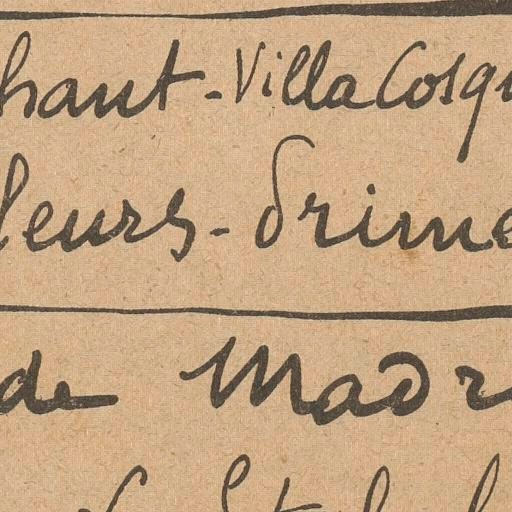 hant - Villa Cosq
leurs - drime
de Madr